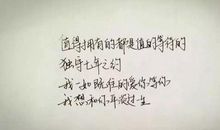 值得拥有的都是值的等待的
独守七年之约
我一如既往的爱你,等你,
我想和你再没过一生